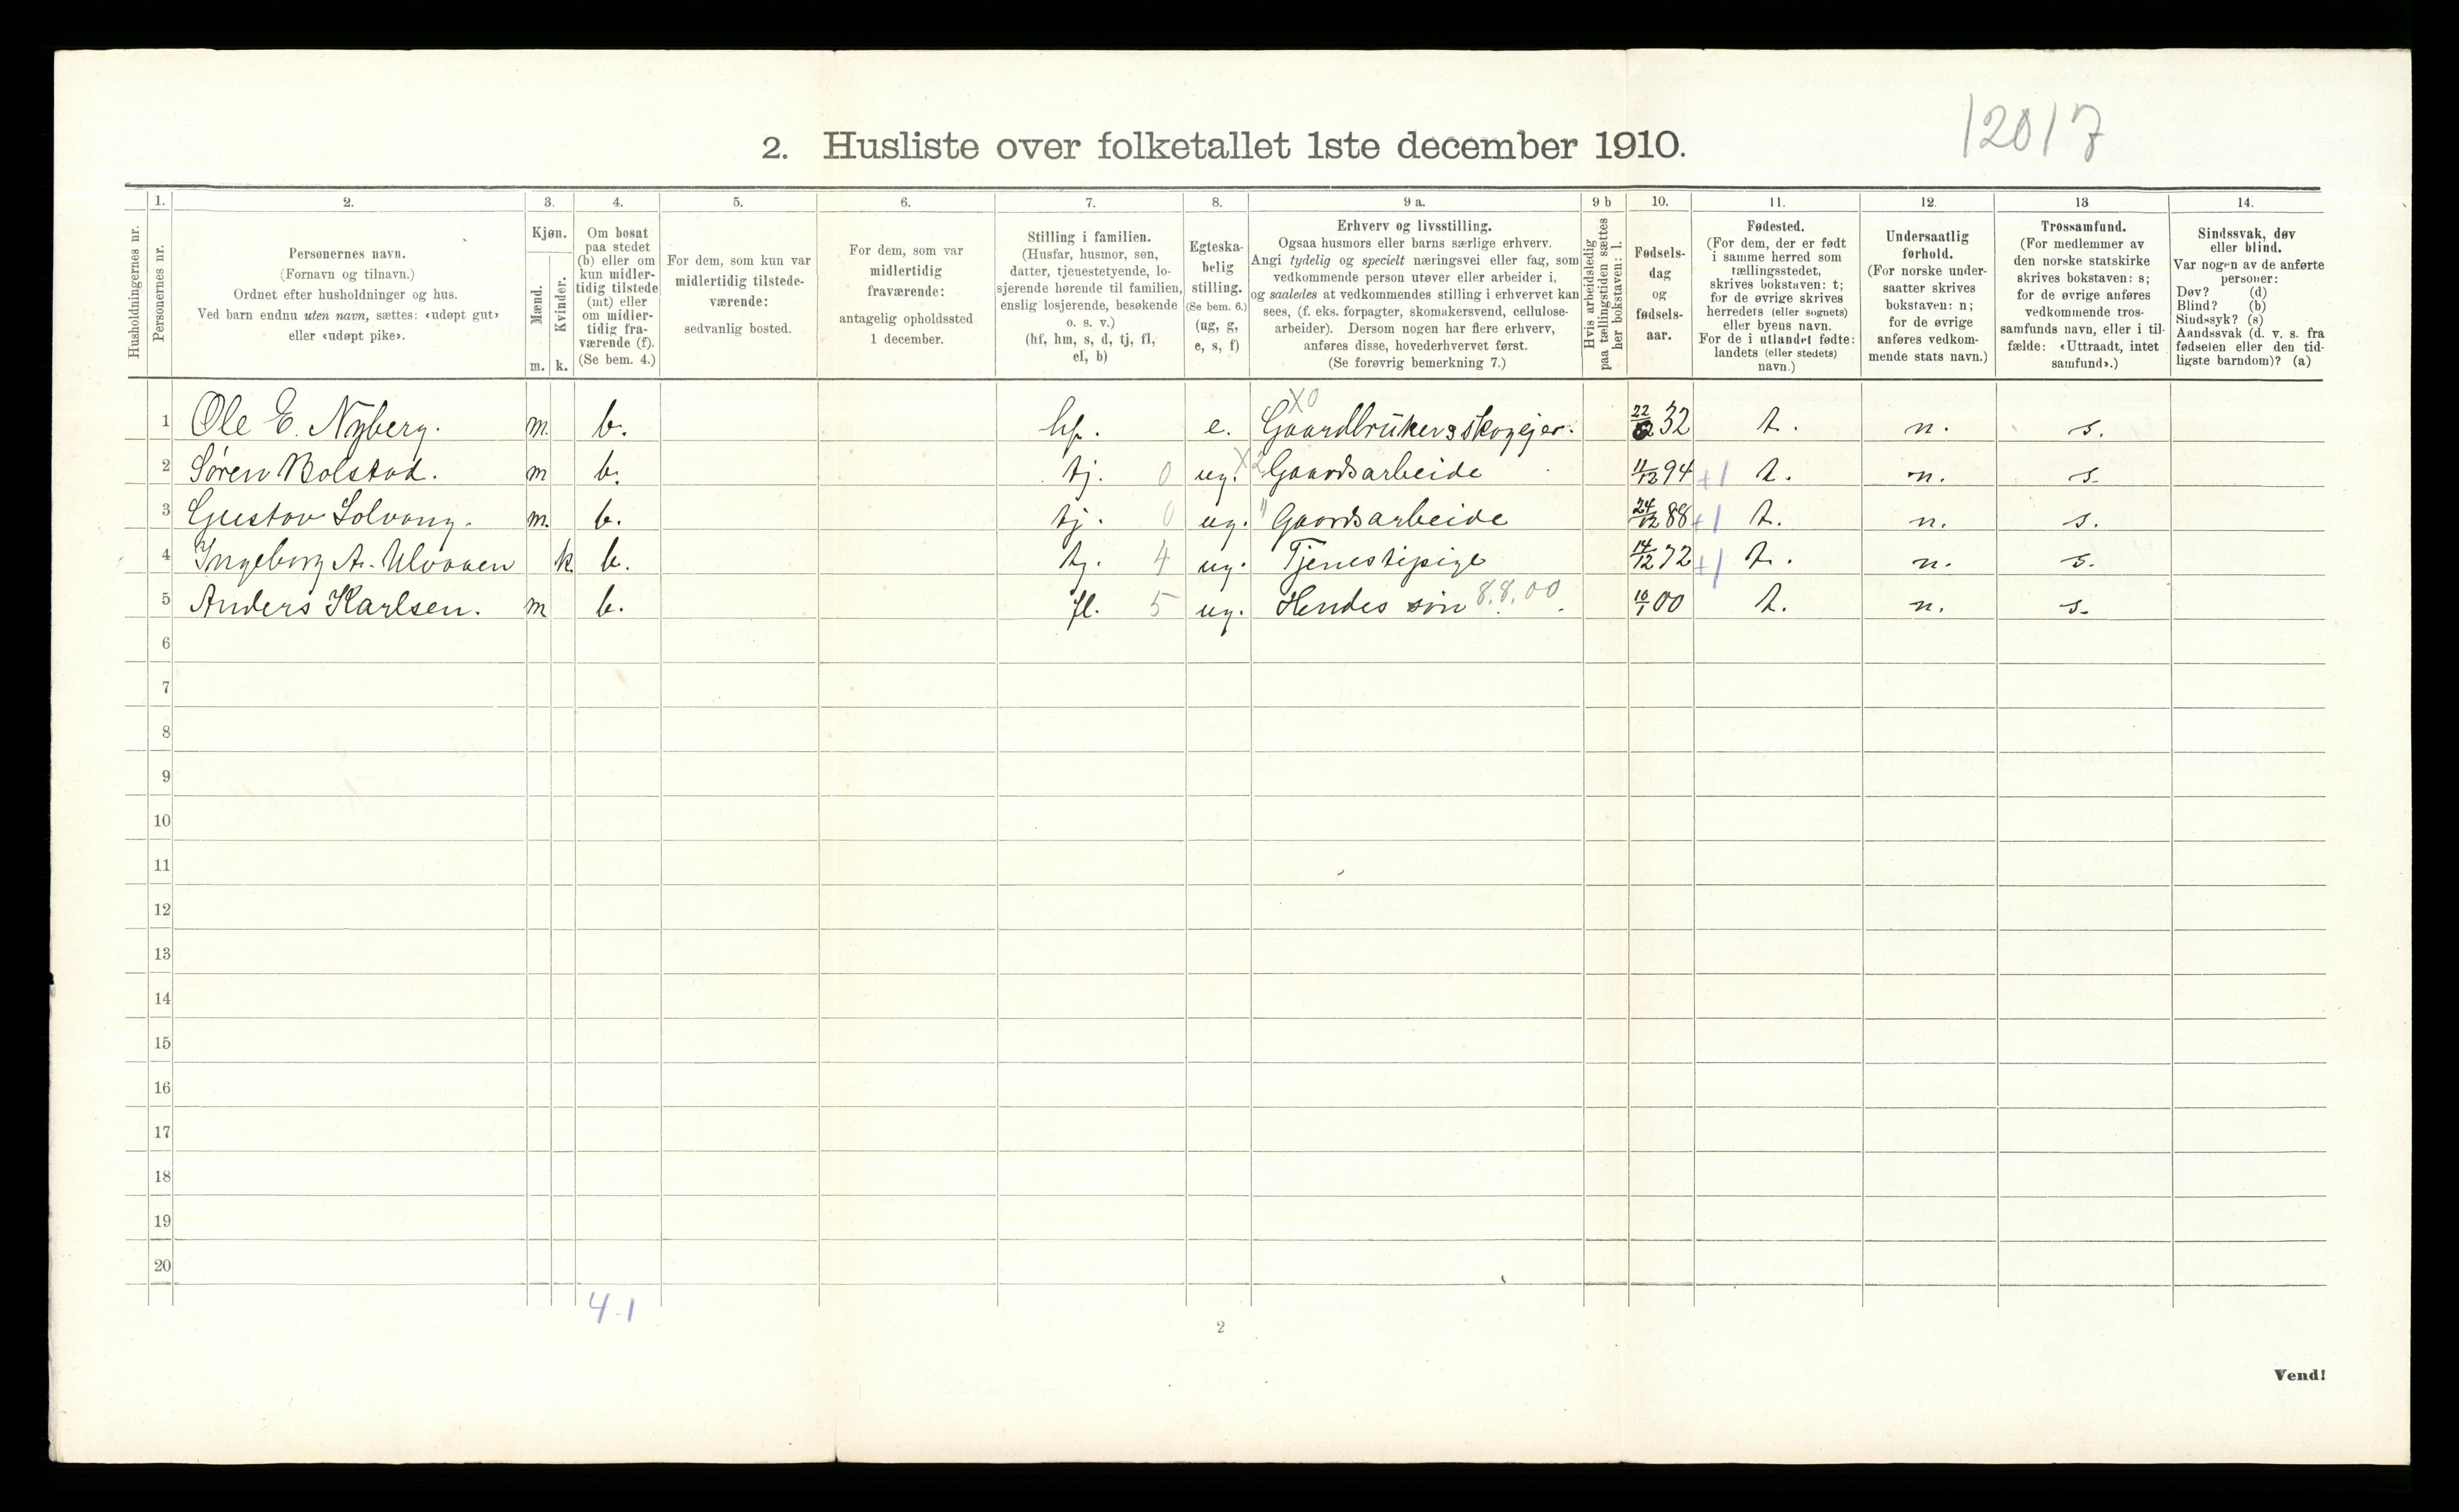 12017
2. Husliste over folketallet 1ste december 1910.
Husholdningernes nr.
1.
Personernes nr.
2.
Personernes navn.
(Fornavn og tilnavn.)
Ordnet efter husholdninger og hus.
Ved barn endnu uten navn, sættes: «udøpt gut»
eller «udøpt pike».
3.
Kjøn.
Mænd.
Kvinder.
m. k.
4.
Om bosat
paa stedet
(b) eller om
kun midler-
tidig tilstede
(mt) eller
om midler-
tidig fra-
værende (f).
(Se bem. 4.)
5.
For dem, som kun var
midlertidig tilstede-
værende:
sedvanlig bosted.
6.
For dem, som var
midlertidig
fraværende:
antagelig opholdssted
1 december.
7.
Stilling i familien.
(Husfar, husmor, søn,
datter, tjenestetyende, lo-
sjerende hørende til familien,
enslig losjerende, besøkende
o. s. v.)
(hf, hm, s, d, tj, fl,
el, b)
8.
Egteska-
belig
stilling.
(Se bem. 6.)
(ug, g,
e, s, f)
9 a.
Erhverv og livsstilling.
Ogsaa husmors eller barns særlige erhverv.
Angi tydelig og specielt næringsvei eller fag, som
vedkommende person utøver eller arbeider i,
og saaledes at vedkommendes stilling i erhvervet kan
sees, (f. eks. forpagter, skomakersvend, cellulose-
arbeider). Dersom nogen har flere erhverv,
anføres disse, hovederhvervet først.
(Se forøvrig bemerkning 7.)
9 b
Hvis arbeidsledig
paa tællingstiden sættes
her bokstaven: l.
10.
Fødsels-
dag
og
fødsels-
aar.
11.
Fødested.
(For dem, der er født
i samme herred som
tællingsstedet,
skrives bokstaven: t;
for de øvrige skrives
herredets (eller sognets)
eller byens navn.
For de i utlandet fødte:
landets (eller stedets)
navn.)
12.
Undersaatlig
forhold.
(For norske under-
saatter skrives
bokstaven: n;
for de øvrige
anføres vedkom-
mende stats navn.)
13
Trossamfund.
(For medlemmer av
den norske statskirke
skrives bokstaven: s;
for de øvrige anføres
vedkommende tros-
samfunds navn, eller i til-
fælde: «Uttraadt, intet
samfund».)
14.
Sindssvak, døv
eller blind.
Var nogen av de anførte
personer:
Døv? (d)
Blind? (b)
Sindssyk? (s)
Aandssvak (d. v. s. fra
fødselen eller den tid-
ligste barndom)? (a)
X0
1 Ole E. Nyberg. m. b. hf. e. Gaardbruker & Skogejer. 22/12 32 t. n. s.
2 Søren Bolstad. m b. tj. 0 ug. X2 Gaardsarbeide 11/12 94 +1 t. n. s.
3 Gustav Solvang. m. b. tj. 0 ug. " Gaardsarbeide 24/12 88 +1 t. n. s.
4 Ingeborg A. Ulvaaen k. b. tj. 4 ug. Tjenestipige 14/12 72 +1 t. n. s.
5 Anders Karlsen. m b. fl. 5 ug. Hendes søn 8.8.00 10/1 00 t. n. s.
6
7
8
9
10
11
12
13
14
15
16
17
18
19
20
4-1
2
Vend!